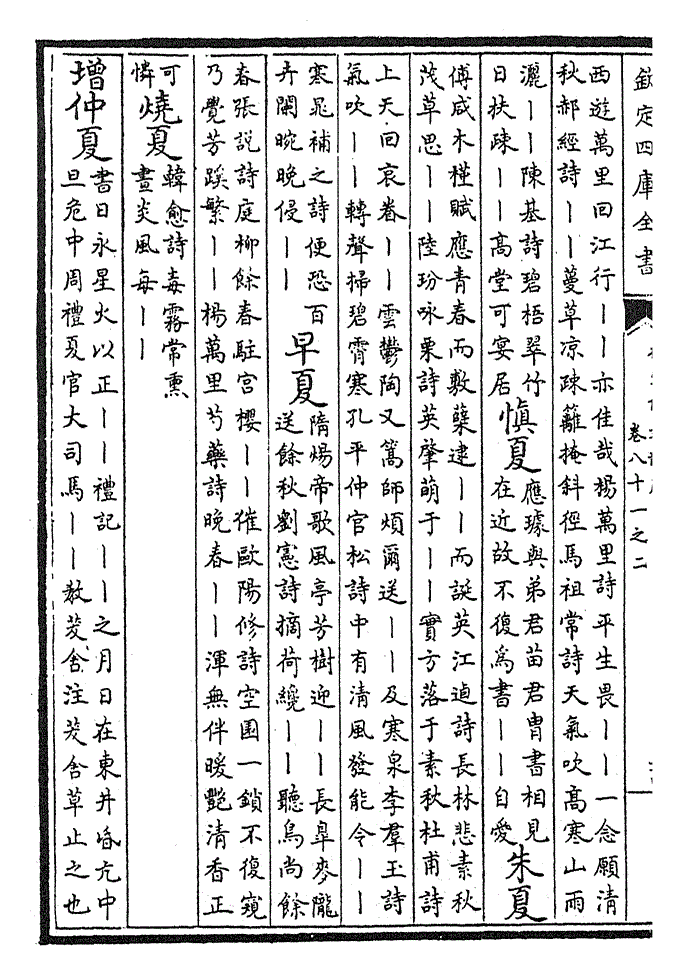 欽定四庫全書
卷八十一之二
西遊萬里回江行丨丨亦佳哉楊萬里詩平生畏丨丨一念願清
秋郝經詩丨丨蔓草凉疎籬掩斜徑馬祖常詩天氣吹髙寒山雨
灑丨丨陳基詩碧梧翠竹
日扶疎丨丨髙堂可宴居
慎夏
應璩與弟君苗君胄書相見
在近故不復爲書丨丨自愛
朱夏
傅咸木槿賦應青春而敷蘖逮丨丨而誕英江逌詩長林悲素秋
茂草思丨丨陸玢咏栗詩英肇萌于丨丨實方落于素秋杜甫詩
上天回哀眷丨丨雲鬱陶又篙師煩爾送丨丨及寒泉李羣玉詩
氣吹丨丨轉聲掃碧霄寒孔平仲官松詩中有清風發能令丨丨
寒晁補之詩便恐百
卉闌晼晚侵丨丨
早夏
隋煬帝歌風亭芳樹迎丨丨長皐麥隴
送餘秋劉憲詩摘荷纔丨丨聽鳥尚餘
春張説詩庭柳餘春駐宫櫻丨丨催歐陽修詩空園一鎖不復窺
乃覺芳蹊繁丨丨楊萬里芍藥詩晚春丨丨渾無伴暖艷清香正
可
憐
燒夏
韓愈詩毒霧常熏
晝炎風每丨丨
增仲夏
書日永星火以正丨丨禮記丨丨之月日在東井昏亢中
旦危中周禮夏官大司馬丨丨教茇舍注茇舍草止之也